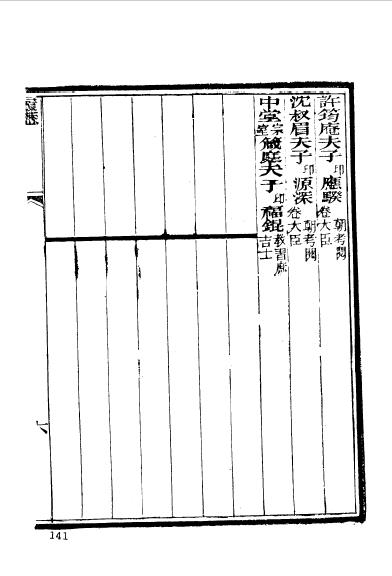 許筠庵夫子印應騤朝考閱卷大臣
沈叔眉夫子印源深朝考閱卷大臣
中堂宗室箴庭夫子印福錕教習庶吉士
141